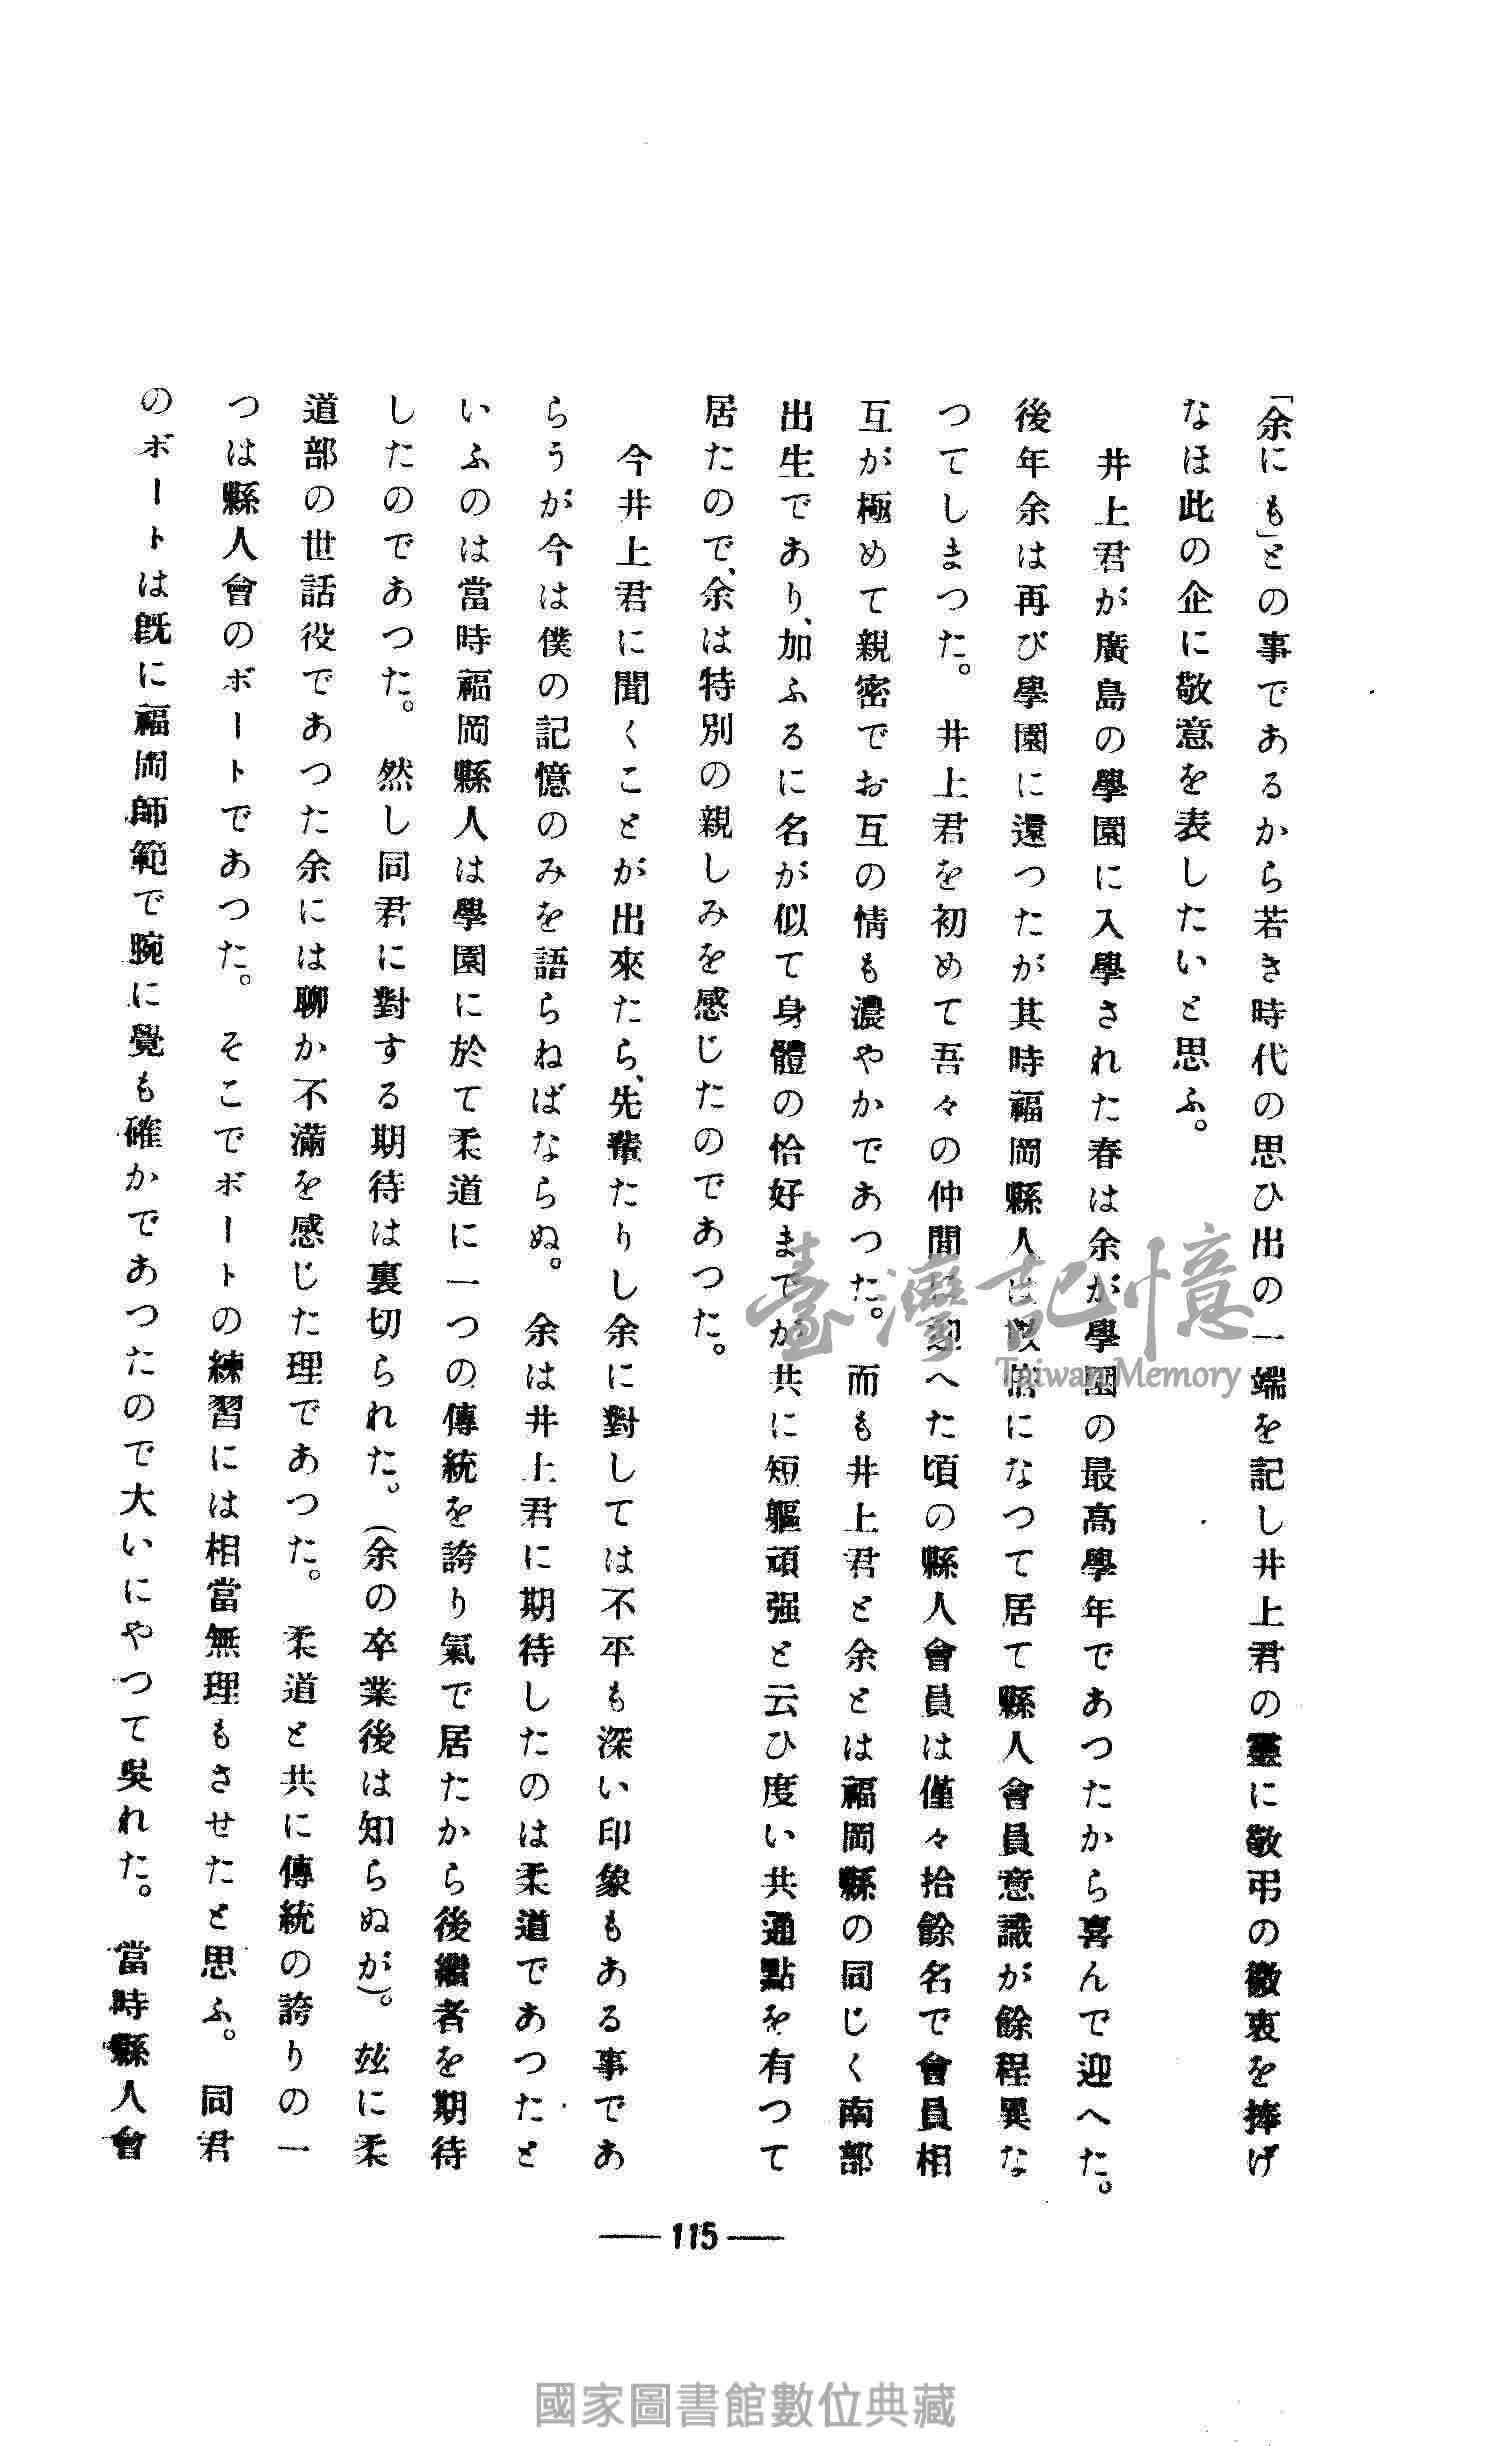 「余にも」との事であるから若き時代の思ひ出の一端を記し井上君の靈に敬弔の微衷を捧げ
なほ此の企に敬意を表したいと思ふ。
井上君が廣島の學園に入學された春は余が學園の最高學年であつたから喜んで迎へた。
後年余は再び學園に還つたが其時福岡縣人は以倍になつて居て縣人會員意識が餘程異な
つてしまつた。井上君を初めて吾々の仲間に迎へた頃の縣人會員は僅々拾餘名で會員相
互が極めて親密でお互の情も濃やかであつた。而も井上君と余とは福岡縣の同じく南部
出生であり、加ふるに名が似て身體の恰好までが共に短軀頑强と云ひ度い共通點を有つて
居たので、余は特別の親しみを感じたのであつた。
今井上君に聞くことが出來たら、先輩たりし余に對しては不平も深い印象もある事であ
らうが今は僕の記憶のみを語らねばならぬ。余は井上君に期待したのは柔道であつたと
いふのは當時福岡縣人は學園に於て柔道に一つの傳統を誇り氣で居たから後繼者を期待
したのであつた。然し同君に對する期待は裏切られた。(余の卒業後は知らぬが)。玆に柔
道部の世話役であつた余には聊か不滿を感じた理であつた。柔道と共に傳統の誇りの一
つは縣人會のボートであつた。そこでボートの練習には相當無理もさせたと思ふ。同君
のボートは既に福岡師範で腕に覺も確かであつたので大いにやつて吳れた。當時縣人會
— 115 —
臺灣記憶
Taiwan Memory
國家圖書館數位典藏